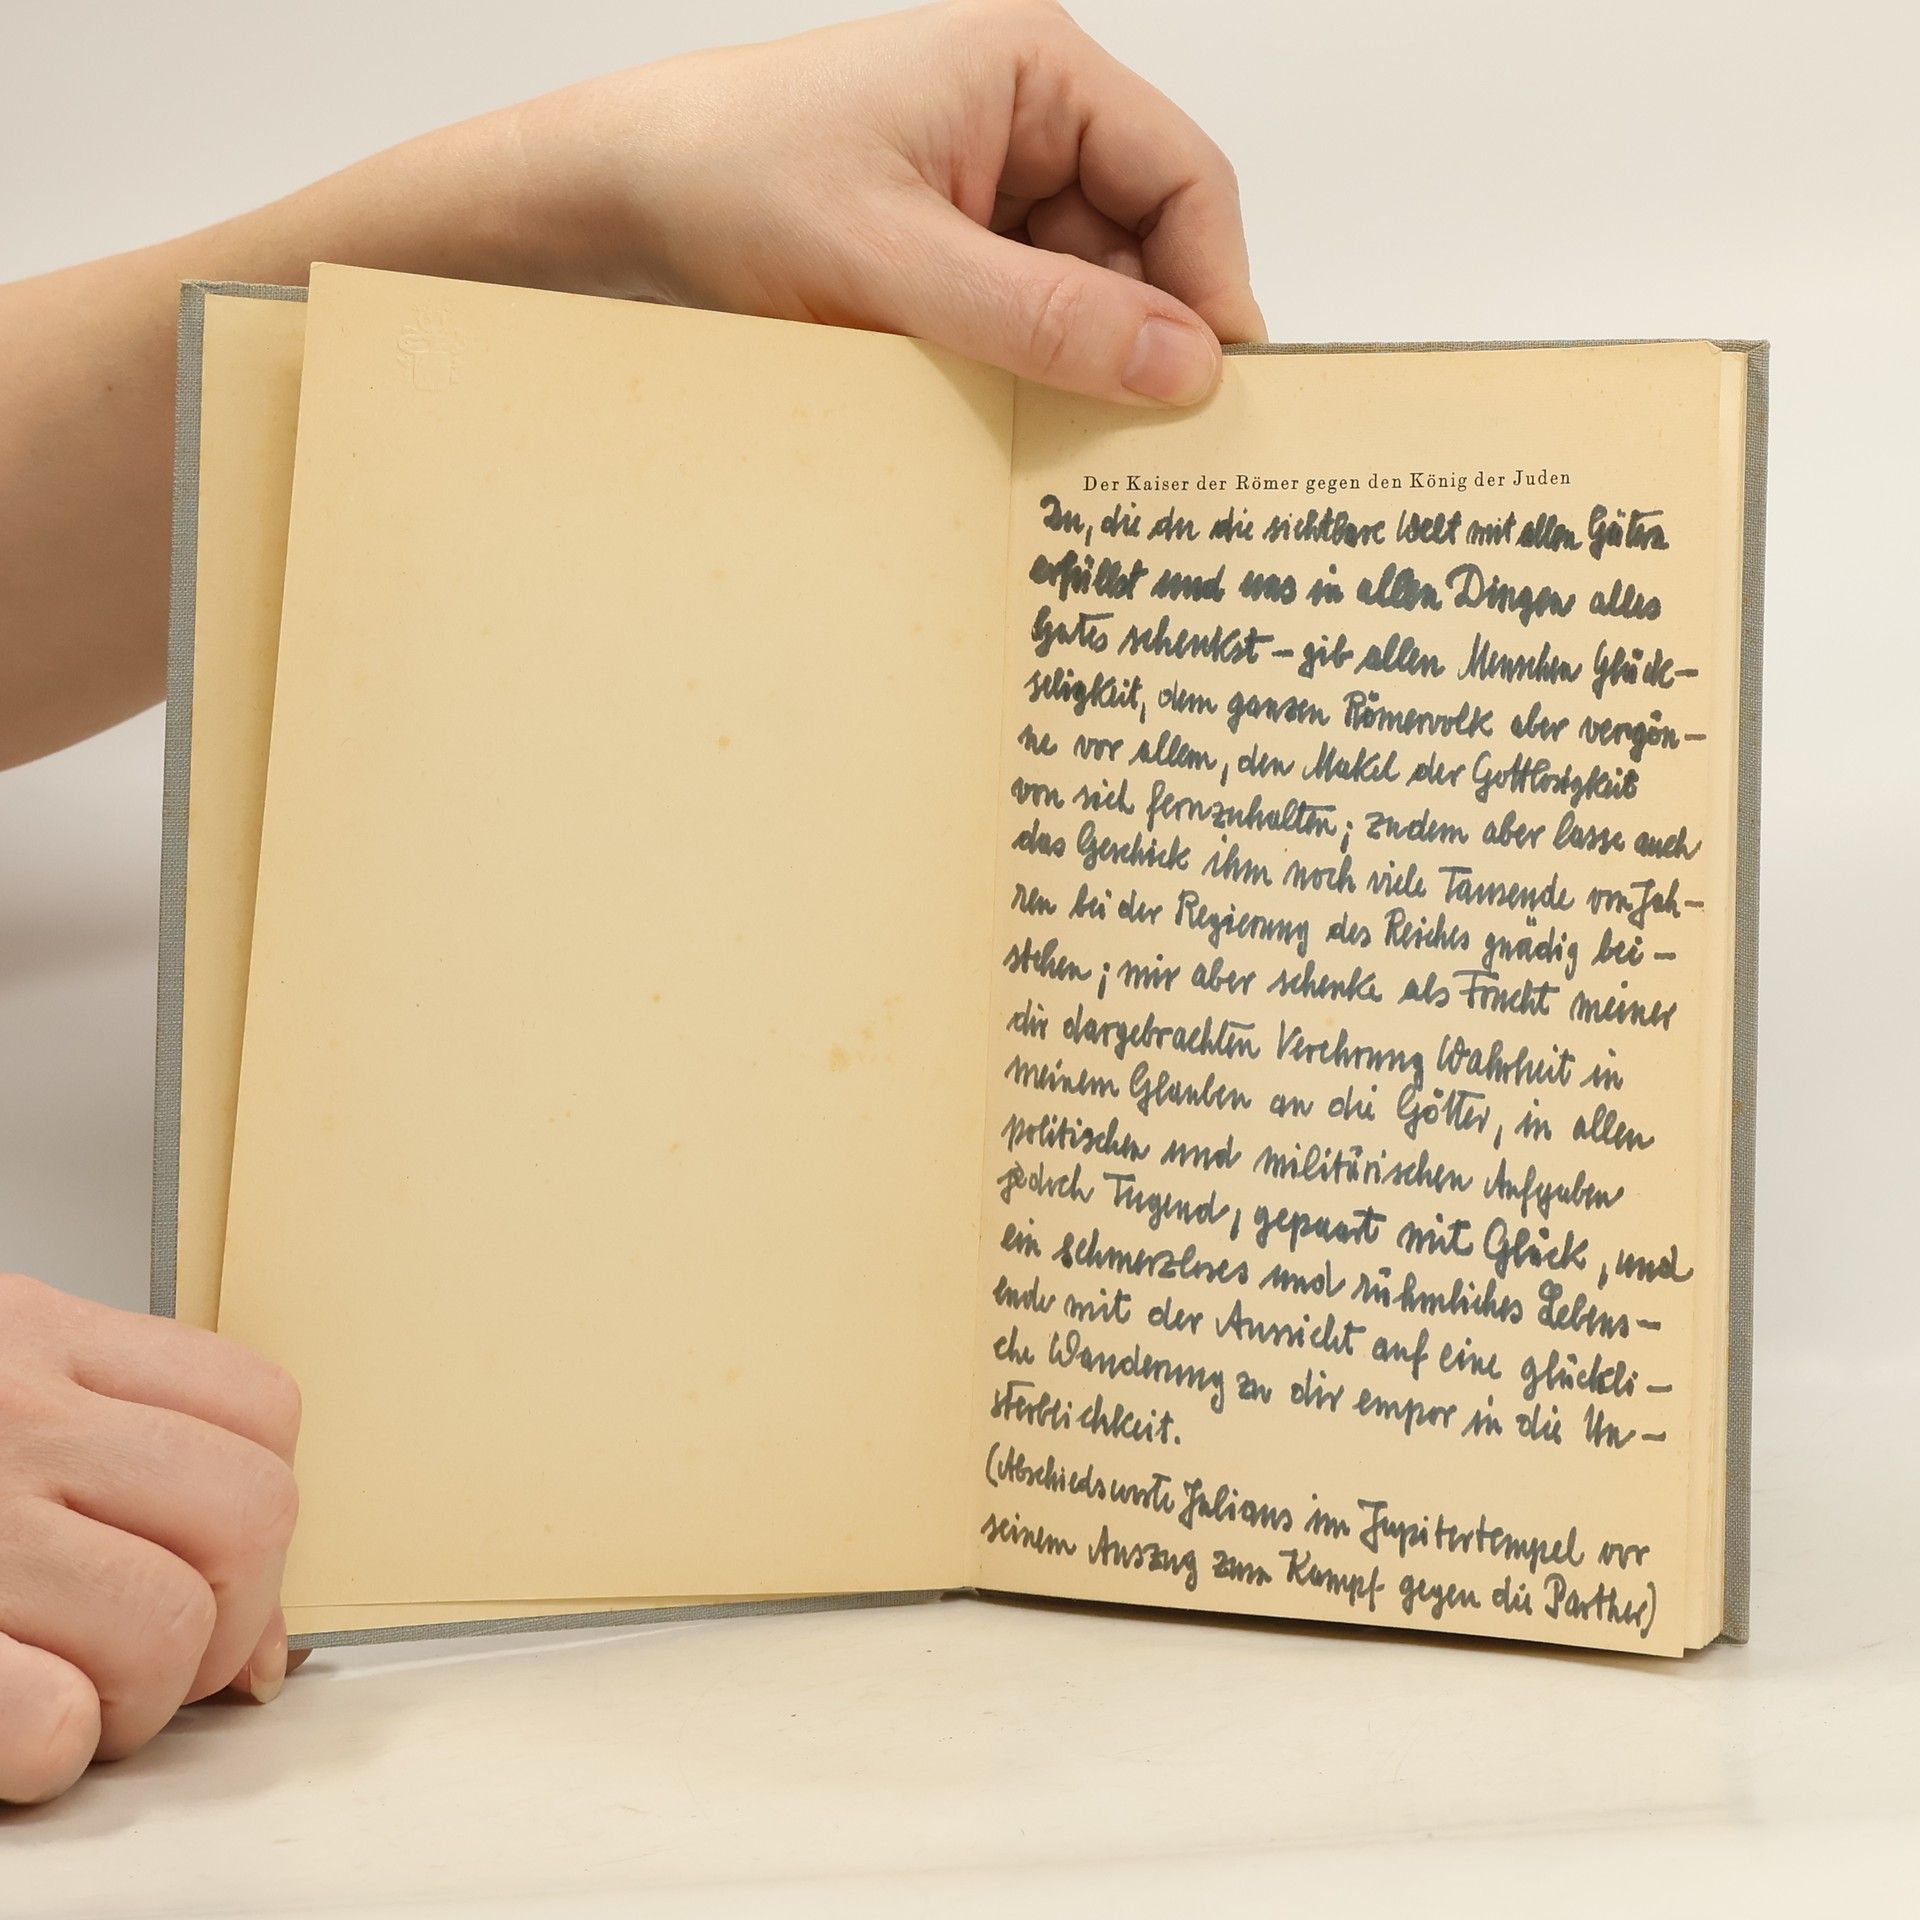 Der Kaiser der Römer gegen den König der Juden
Du, die du die sichtbare Welt mit allen Gütern
erfüllst und uns in allen Dingen alles
Gutes schenkst – gib allen Menschen Glück–
seligkeit, dem ganzen Römervolk aber vergön–
ne vor allem, den Makel der Gottlosigkeit
von sich fernzuhalten; zudem aber lasse auch
das Geschick ihm noch viele Tausende von Jah–
ren bei der Regierung des Reiches gnädig bei–
stehen; mir aber schenke als Frucht meiner
dir dargebrachten Verehrung Wahrheit in
meinem Glauben an die Götter, in allen
politischen und militärischen Aufgaben
jedoch Tugend, gepaart mit Glück, und
ein schmerzloses und rühmliches Lebens–
ende mit der Aussicht auf eine glückli–
che Wanderung zu dir empor in die Un–
sterblichkeit.
(Abschiedsworte Julians im Jupitertempel vor
seinem Auszug zum Kampf gegen die Parther)